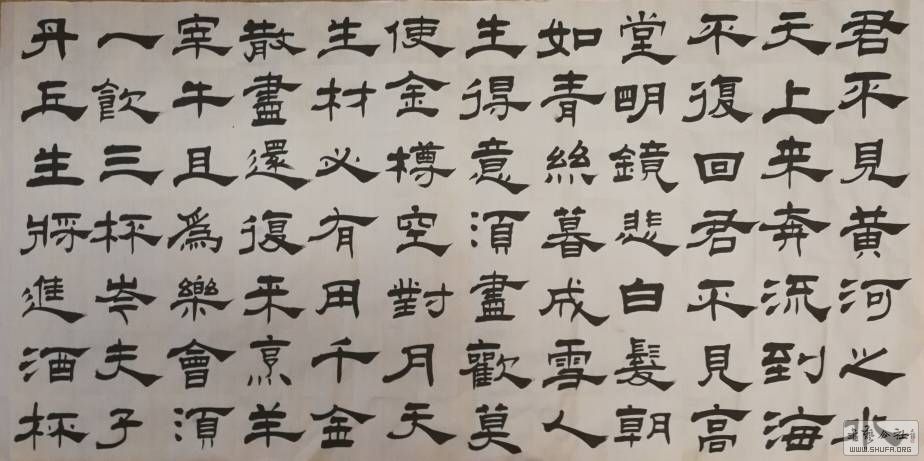 君不見黃河之
天上来奔流到海
不復回君不見高
堂明鏡悲白髮朝
如青絲暮成雪人
生得意須盡歡莫
使金樽空對月天
生材必有用千金
散盡還復来烹羊
宰牛且為樂會須
一飲三杯岑夫子
丹丘生將進酒杯
WWW.SHUFA.ORG